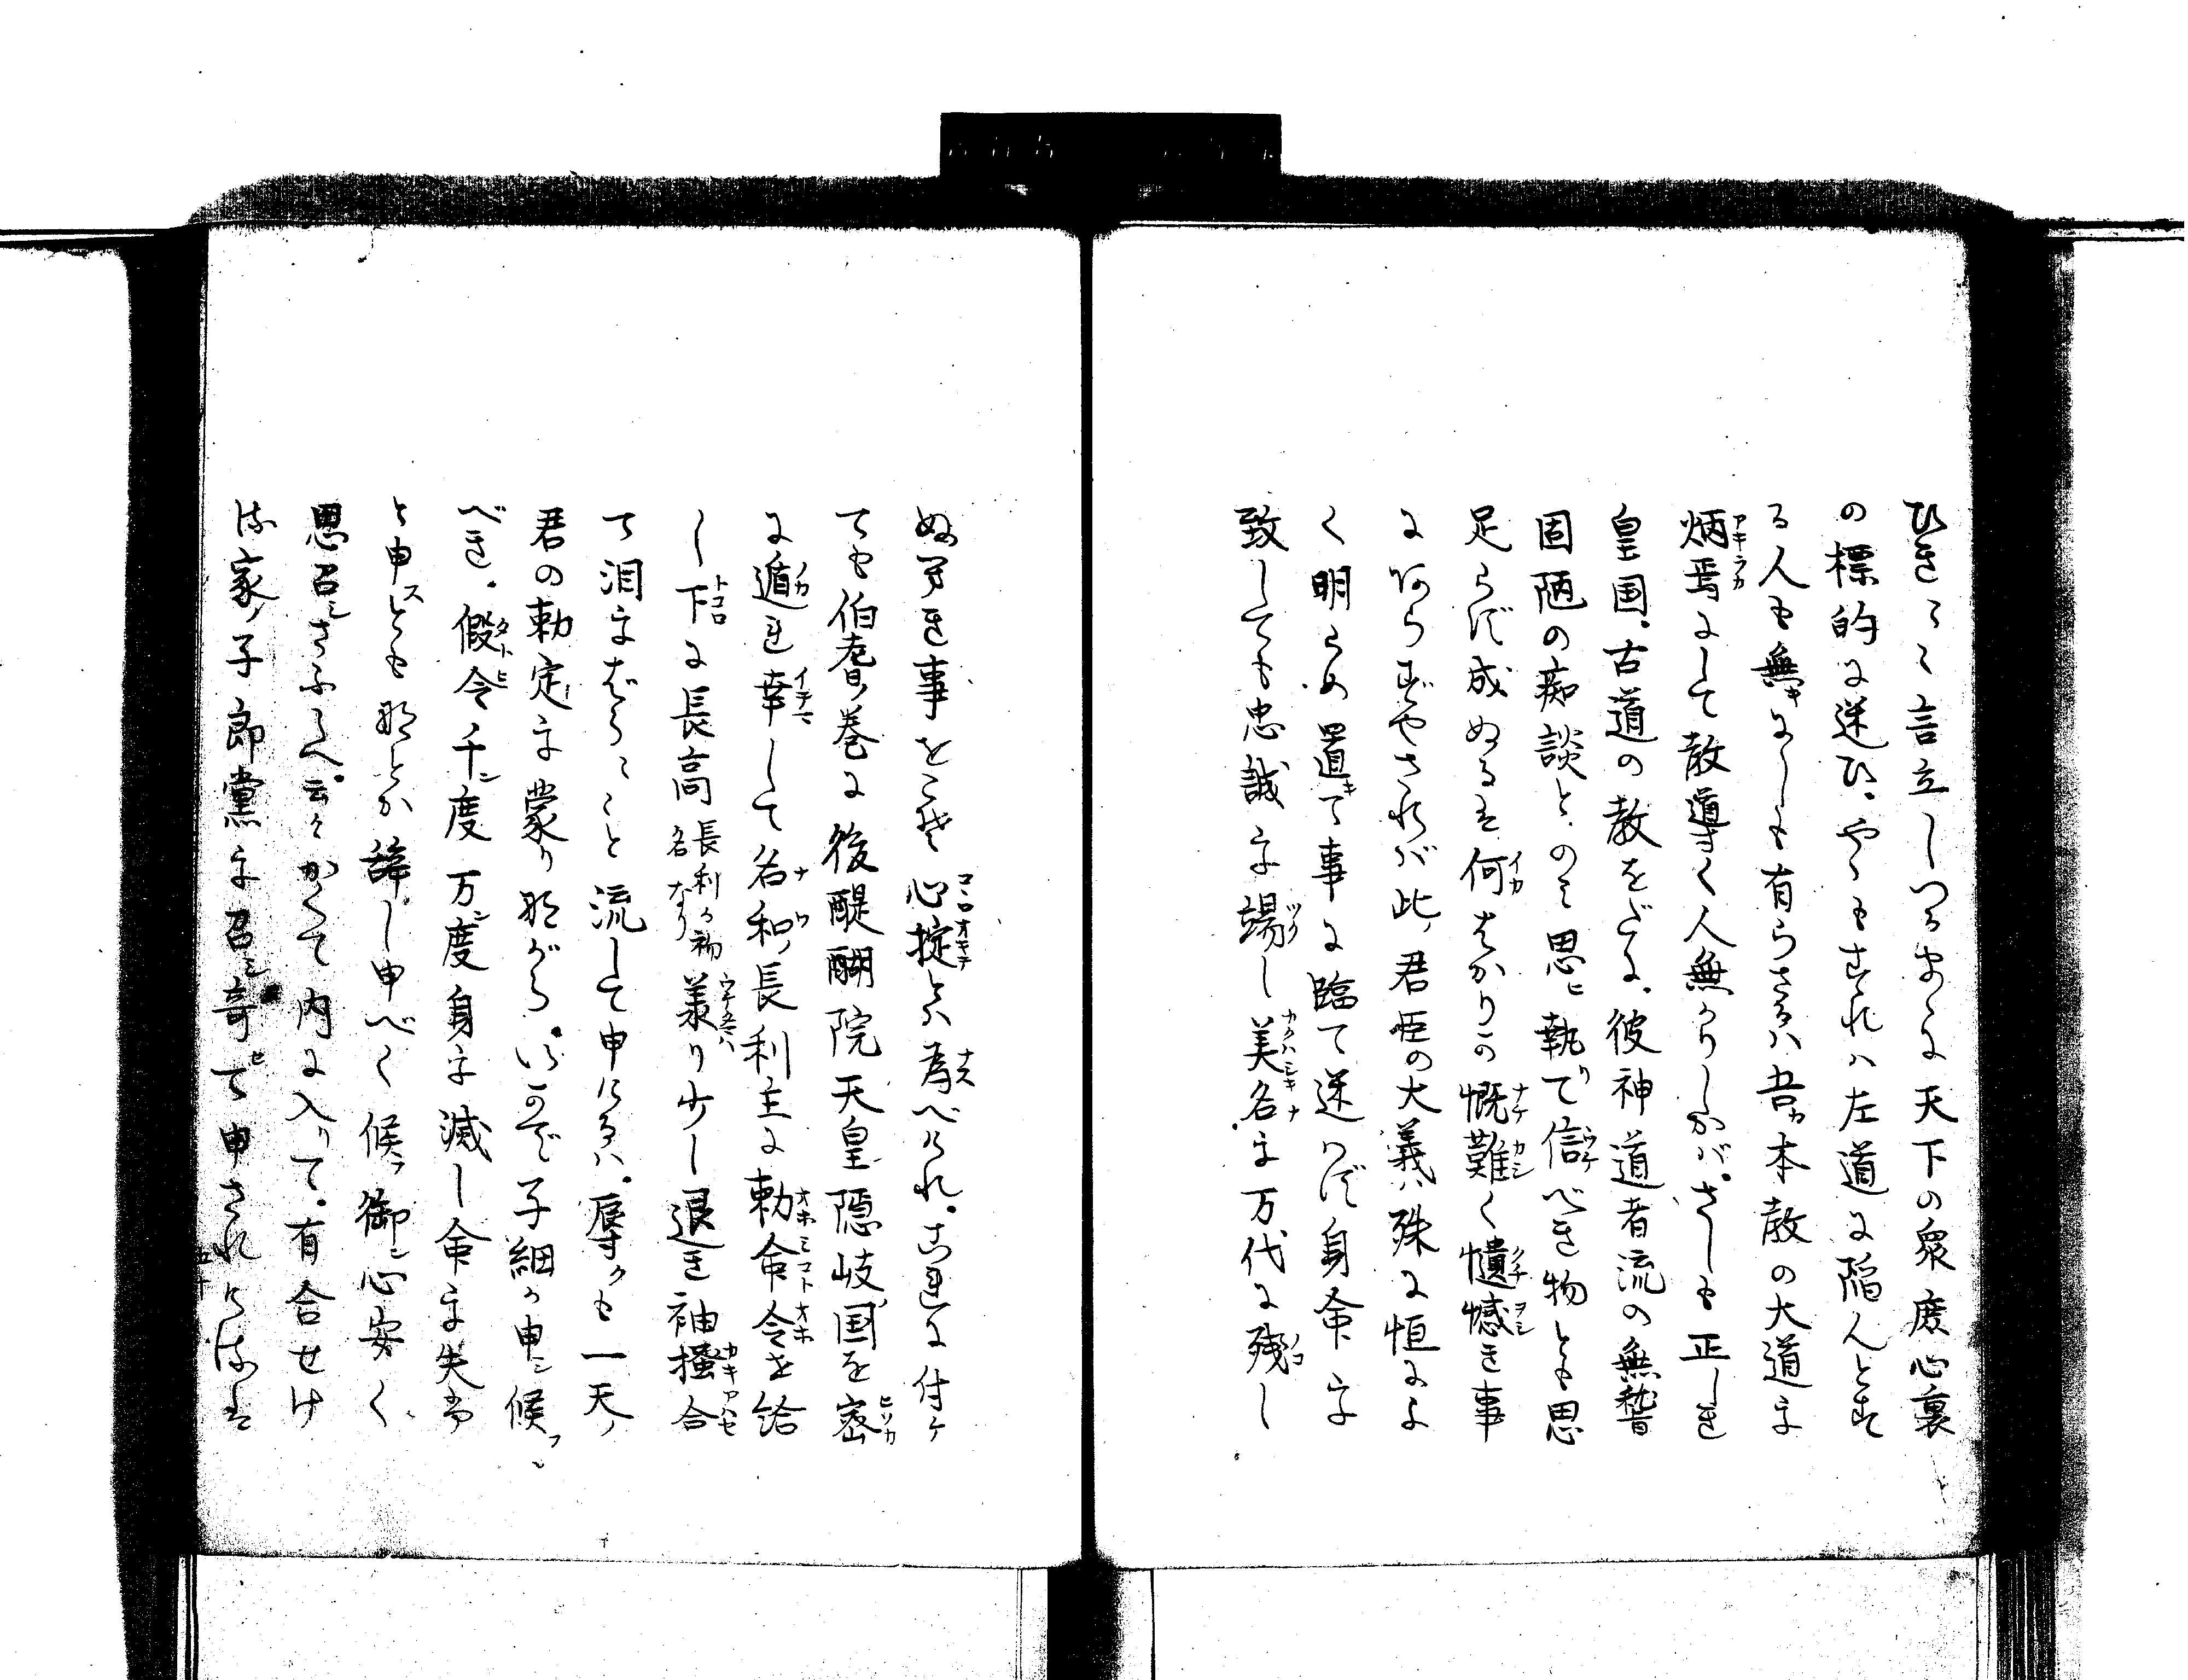 ひき〻〻言立しつるまゝに天下の衆庶心裏
の標的に迷ひ。やゝもすれハ左道に陥んとす
る人も無きにしも有らさるハ吾カ本教の大道を
炳焉にして教導く人無かりしかバ。さしも正しき
皇国。古道の教をだに。彼神道者流の無替
固陋の痴談とのミ思ヒ執リて信べき物とも思
足らず成ぬるは何はかりの慨難く憤憾き事
にあらずやされバ此ノ君臣の大義ハ殊に恒によ
く明らめ置キて事に臨て迷はず身命を
致しても忠誠を竭し美名を万代に残し
ぬ可き事をこそ心掟とハ為べけれ。これに付ケ
ても伯耆ノ巻に後醍醐院天皇隠岐ノ国を密
に遁れ幸して名和ノ長利主に勅命令を給
し下に長高長利カ初名なり美り少し退き袖掻合
て泪をはら〻〻と流して申けるハ。辱クも一天ノ
君の勅定を蒙りながら。いかで子細カ申シ候フ
べき。假令千ン度万ン度身を滅し命を失フ
と申ストもなとか辞し申べく候フ御ン心安く
思召シさふらへ。云々かくて内に入リて。有合せけ
る家ノ子郎黨を召シ寄セて申されけるは